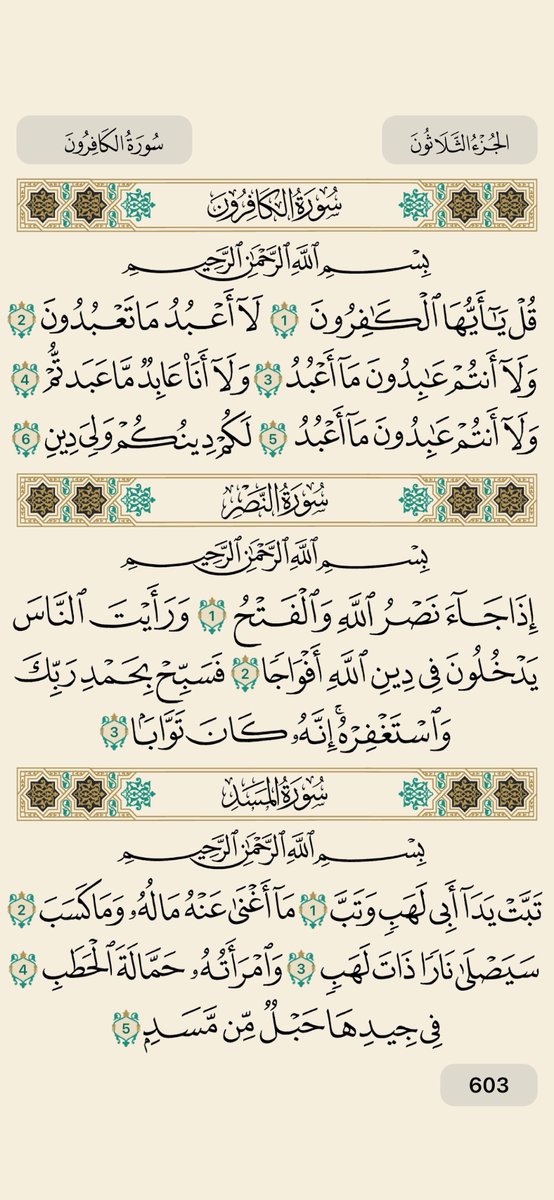 الجُزْءُ الثَّلَاثُونَ
سُورَةُ الكَافِرُونَ
سُورَةُ الكَافِرُونَ
بِسْمِ ٱللَّهِ ٱلرَّحْمَٰنِ ٱلرَّحِيمِ
قُلْ يَٰٓأَيُّهَا ٱلْكَٰفِرُونَ 1 لَآ أَعْبُدُ مَا تَعْبُدُونَ 2
وَلَآ أَنتُمْ عَٰبِدُونَ مَآ أَعْبُدُ 3 وَلَآ أَنَا۠ عَابِدٌ مَّا عَبَدتُّمْ 4
وَلَآ أَنتُمْ عَٰبِدُونَ مَآ أَعْبُدُ 5 لَكُمْ دِينُكُمْ وَلِىَ دِينِ 6
سُورَةُ النَّصْرِ
بِسْمِ ٱللَّهِ ٱلرَّحْمَٰنِ ٱلرَّحِيمِ
إِذَا جَآءَ نَصْرُ ٱللَّهِ وَٱلْفَتْحُ 1 وَرَأَيْتَ ٱلنَّاسَ
يَدْخُلُونَ فِى دِينِ ٱللَّهِ أَفْوَاجًا 2 فَسَبِّحْ بِحَمْدِ رَبِّكَ
وَٱسْتَغْفِرْهُ ۚ إِنَّهُۥ كَانَ تَوَّابًۢا 3
سُورَةُ المَسَدِ
بِسْمِ ٱللَّهِ ٱلرَّحْمَٰنِ ٱلرَّحِيمِ
تَبَّتْ يَدَآ أَبِى لَهَبٍ وَتَبَّ 1 مَآ أَغْنَىٰ عَنْهُ مَالُهُۥ وَمَا كَسَبَ 2
سَيَصْلَىٰ نَارًا ذَاتَ لَهَبٍ 3 وَٱمْرَأَتُهُۥ حَمَّالَةَ ٱلْحَطَبِ 4
فِى جِيدِهَا حَبْلٌ مِّن مَّسَدٍۭ 5
603